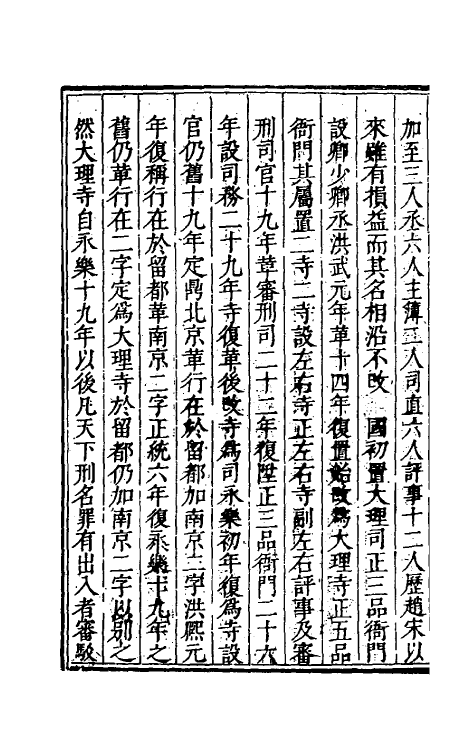 加至三人丞六人主簿二人司直六人評事十二人歷趙宋以
來雖有損益而其名相沿不改　國初置大理司正三品衙門
設卿少卿丞洪武元年革十四年復置始改爲大理寺正五品
衙門其屬置二寺二寺設左右寺正左右寺副左右評事及審
刑司官十九年革審刑司二十二年復陞正三品衙門二十六
年設司務二十九年寺復革後改寺爲司永樂初年復爲寺設
官仍舊十九年定鼎北京革行在於留都加南京二字洪熙元
年復稱行在於留都革南京二字正統六年復永樂十九年之
舊仍革行在二字定爲大理寺於留都仍加南京二字以別之
然大理寺自永樂十九年以後凡天下刑名罪有出入者審駁